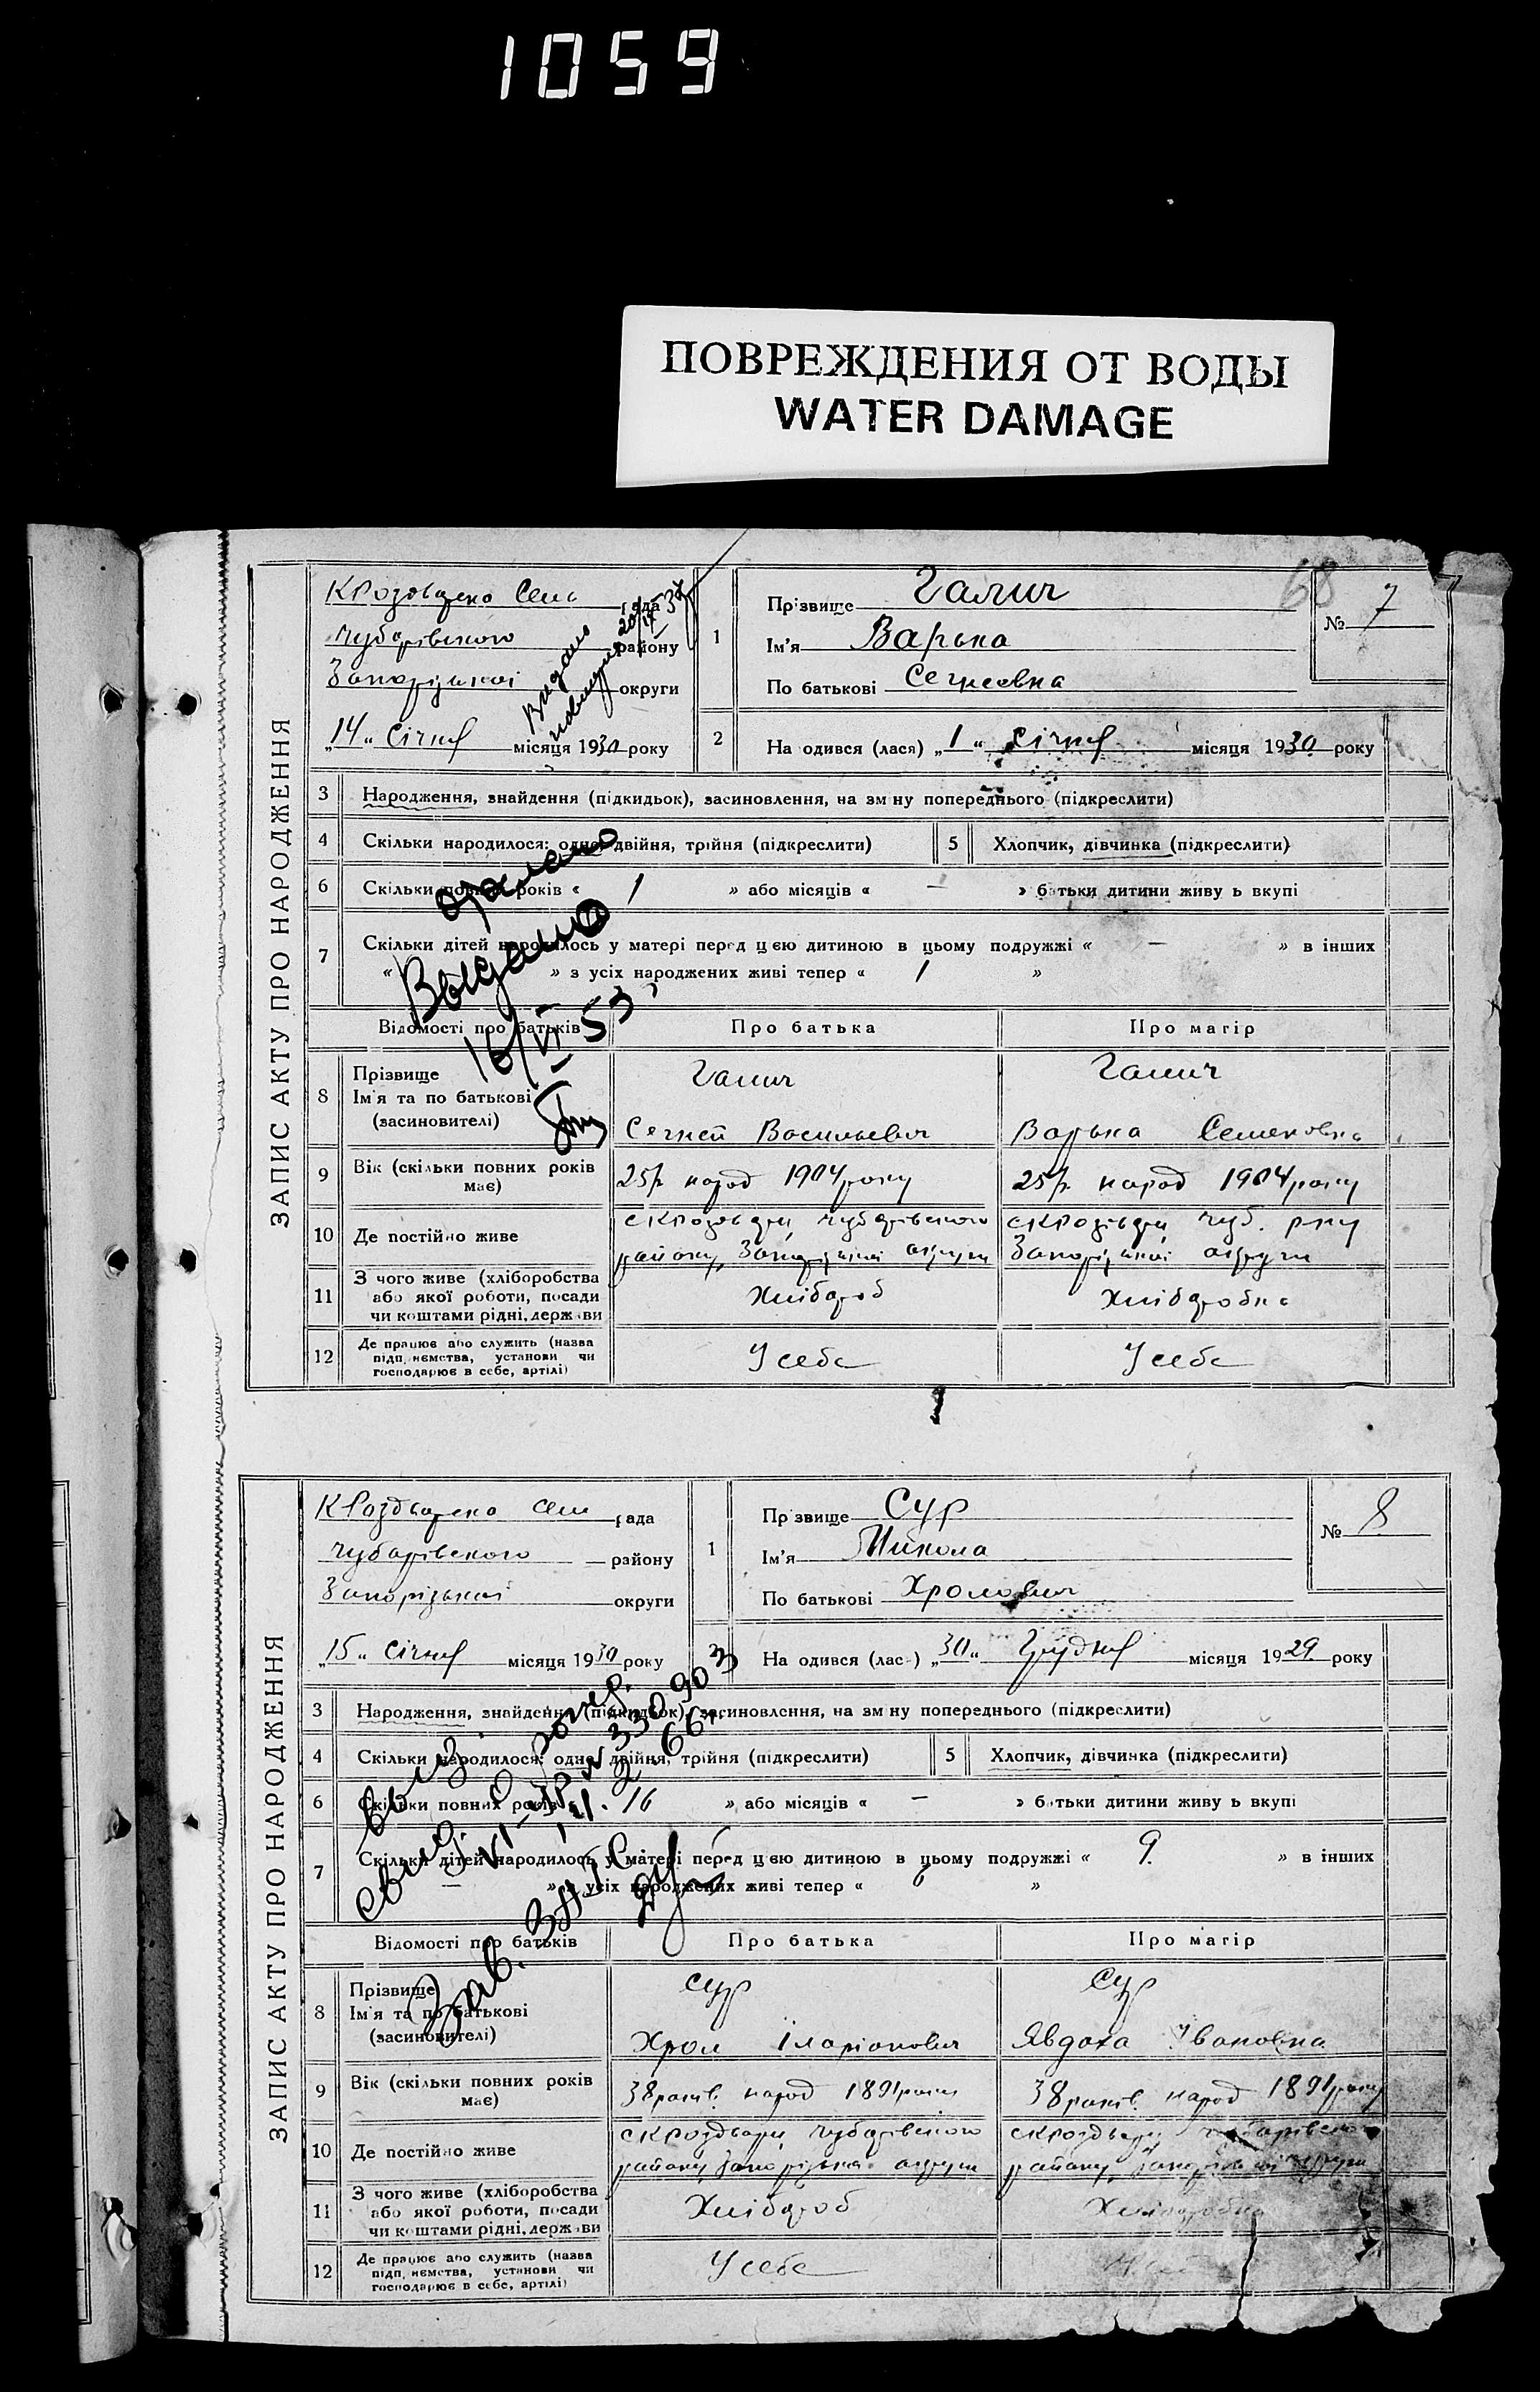 1059
ПОВРЕЖДЕНИЯ ОТ ВОДЫ
WATER DAMAGE
68
ЗАПИС АКТУ ПРО НАРОДЖЕННЯ
сель рада
Чубарівського району
Запорізької округи
„14“ Січня місяця 1930 року
Видано
1
Прізвище Галич
Ім'я Варька
По батькові Сергіевна
№ 7
2
На одився (лася) „1“ Січня місяця 1930 року
3 Народження, знайдення (підкидьок), засиновлення, на зм ну попереднього (підкреслити)
4 Скільки народилося: одне, двійня, трійня (підкреслити)
5 Хлопчик, дівчинка (підкреслити)
6 Скільки повних років « 1 » або місяців « — » батьки дитини живу ь вкупі
7 Скільки дітей народилось у матері перед цією дитиною в цьому подружжі « — » в інших
« » з усіх народжених живі тепер « 1 »
Выдано
16/VI 53
Відомості про батьків
Про батька
Про матір
8 Прізвище
Ім'я та по батькові
(засиновителі)
Галич
Сергей Васильевич
Галич
Варька Семеновна
9 Вік (скільки повних років має)
25 р. народ 1904 року
25 р. народ 1904 року
10 Де постійно живе
Чубарівського
району, Запорізької округи
Чуб. р-ну
Запорізької округи
11 З чого живе (хліборобства
або якої роботи, посади
чи коштами рідні, держави
Хлібороб
Хліборобка
12 Де працює або служить (назва
підп иємства, установи чи
господарює в себе, артілі)
У себе
У себе
ЗАПИС АКТУ ПРО НАРОДЖЕННЯ
сель рада
Чубарівського району
Запорізької округи
„15“ Січня місяця 1930 року
1
Пр звище Сур
Ім'я Микола
По батькові Хролович
№ 8
На одився (лася) „30“ Грудня місяця 1929 року
3 Народження, знайдення (підкидьок), засиновлення, на зм ну попереднього (підкреслити)
4 Скільки народилося: одне, двійня, трійня (підкреслити)
5 Хлопчик, дівчинка (підкреслити)
6 Скільки повних років « 16 » або місяців « — » батьки дитини живу ь вкупі
7 Скільки дітей народилось у матері перед цією дитиною в цьому подружжі « 9 » в інших
« — » з усіх народжених живі тепер « 6 »
Зав.
Відомості про батьків
Про батька
Про матір
8 Прізвище
Ім'я та по батькові
(засиновителі)
Сур
Хрол Іларіонович
Сур
Явдоха Івановна
9 Вік (скільки повних років має)
38 років народ 1891 року
38 років народ 1891 року
10 Де постійно живе
Чубарівського
району Запорізької округи
Чубарівського
району, Запорізької округи
11 З чого живе (хліборобства
або якої роботи, посади
чи коштами рідні, держави
Хлібороб
Хліборобка
12 Де працює або служить (назва
підп иємства, установи чи
господарює в себе, артілі)
У себе